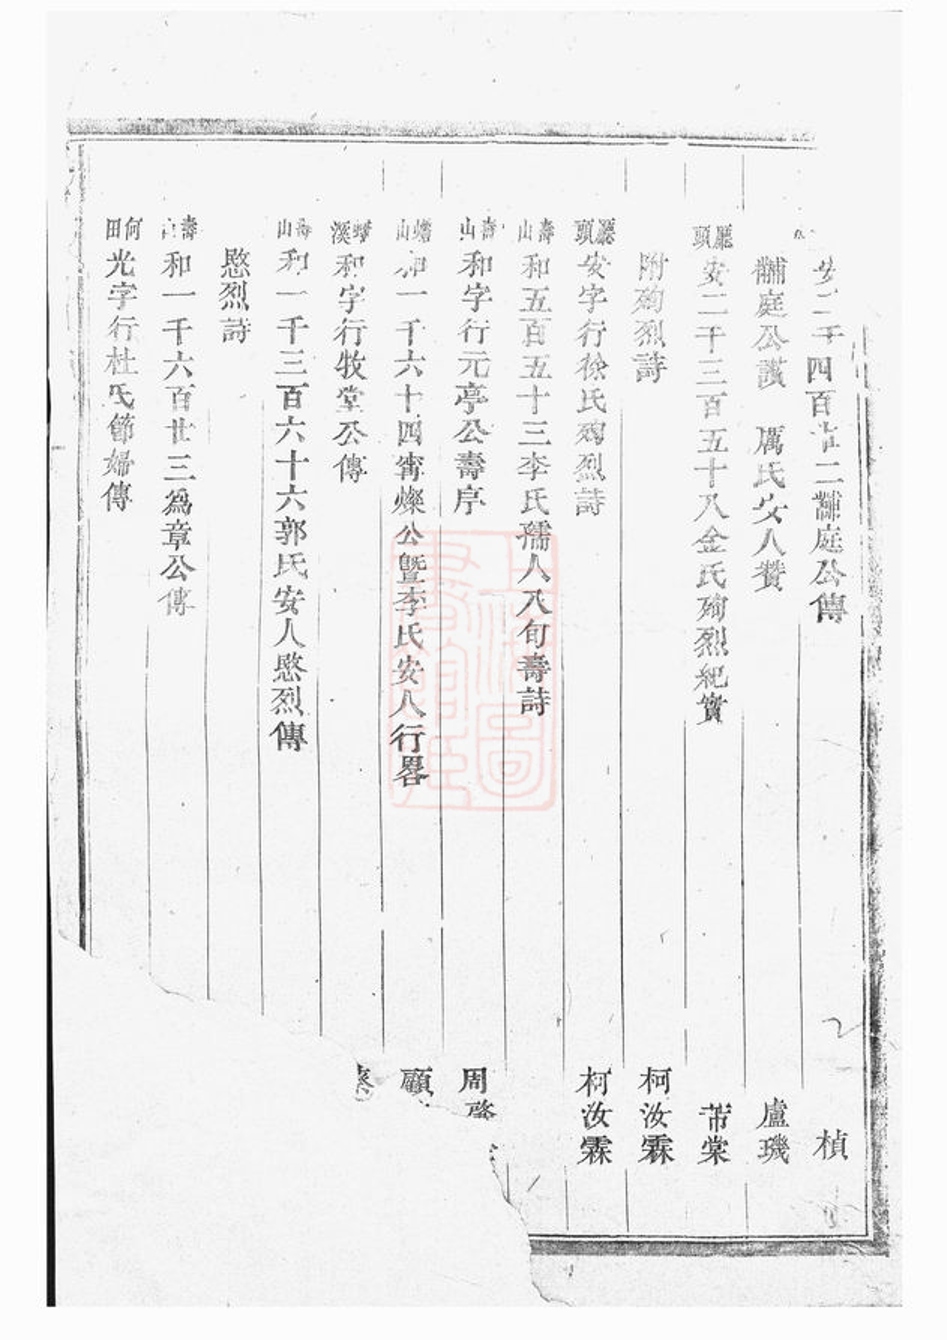 安二千四百廿二黼庭公傳 楨
黼庭公讃 厲氏安人贊 盧璣
廳頭 安二千三百五十八金氏殉烈紀實 芾棠
附殉烈詩 柯汝霖
廳頭 安字行徐氏殉烈詩 柯汝霖
壽山 和五百五十三李氏孺人八旬壽詩
壽山 和字行元亭公壽序 周啓
蟾山 和一千六十四甯燦公暨李氏安人行畧 顧
蟾溪 和字行牧堂公傳 蔡
壽山 和一千三百六十六郭氏安人愍烈傳
愍烈詩
壽山 和一千六百廿三為章公傳
何田 光字行杜氏節婦傳
上海圖書館藏